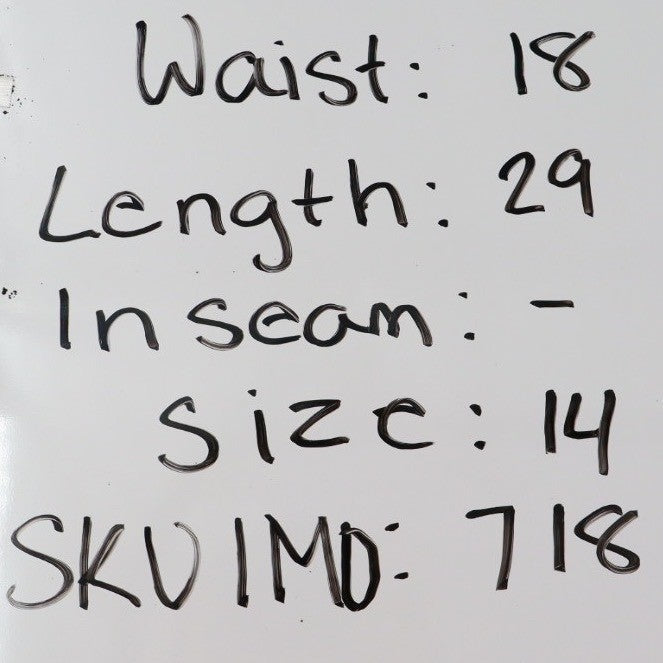 Waist: 18
Length: 29
Inseam: -
Size: 14
SKU IMD: 718